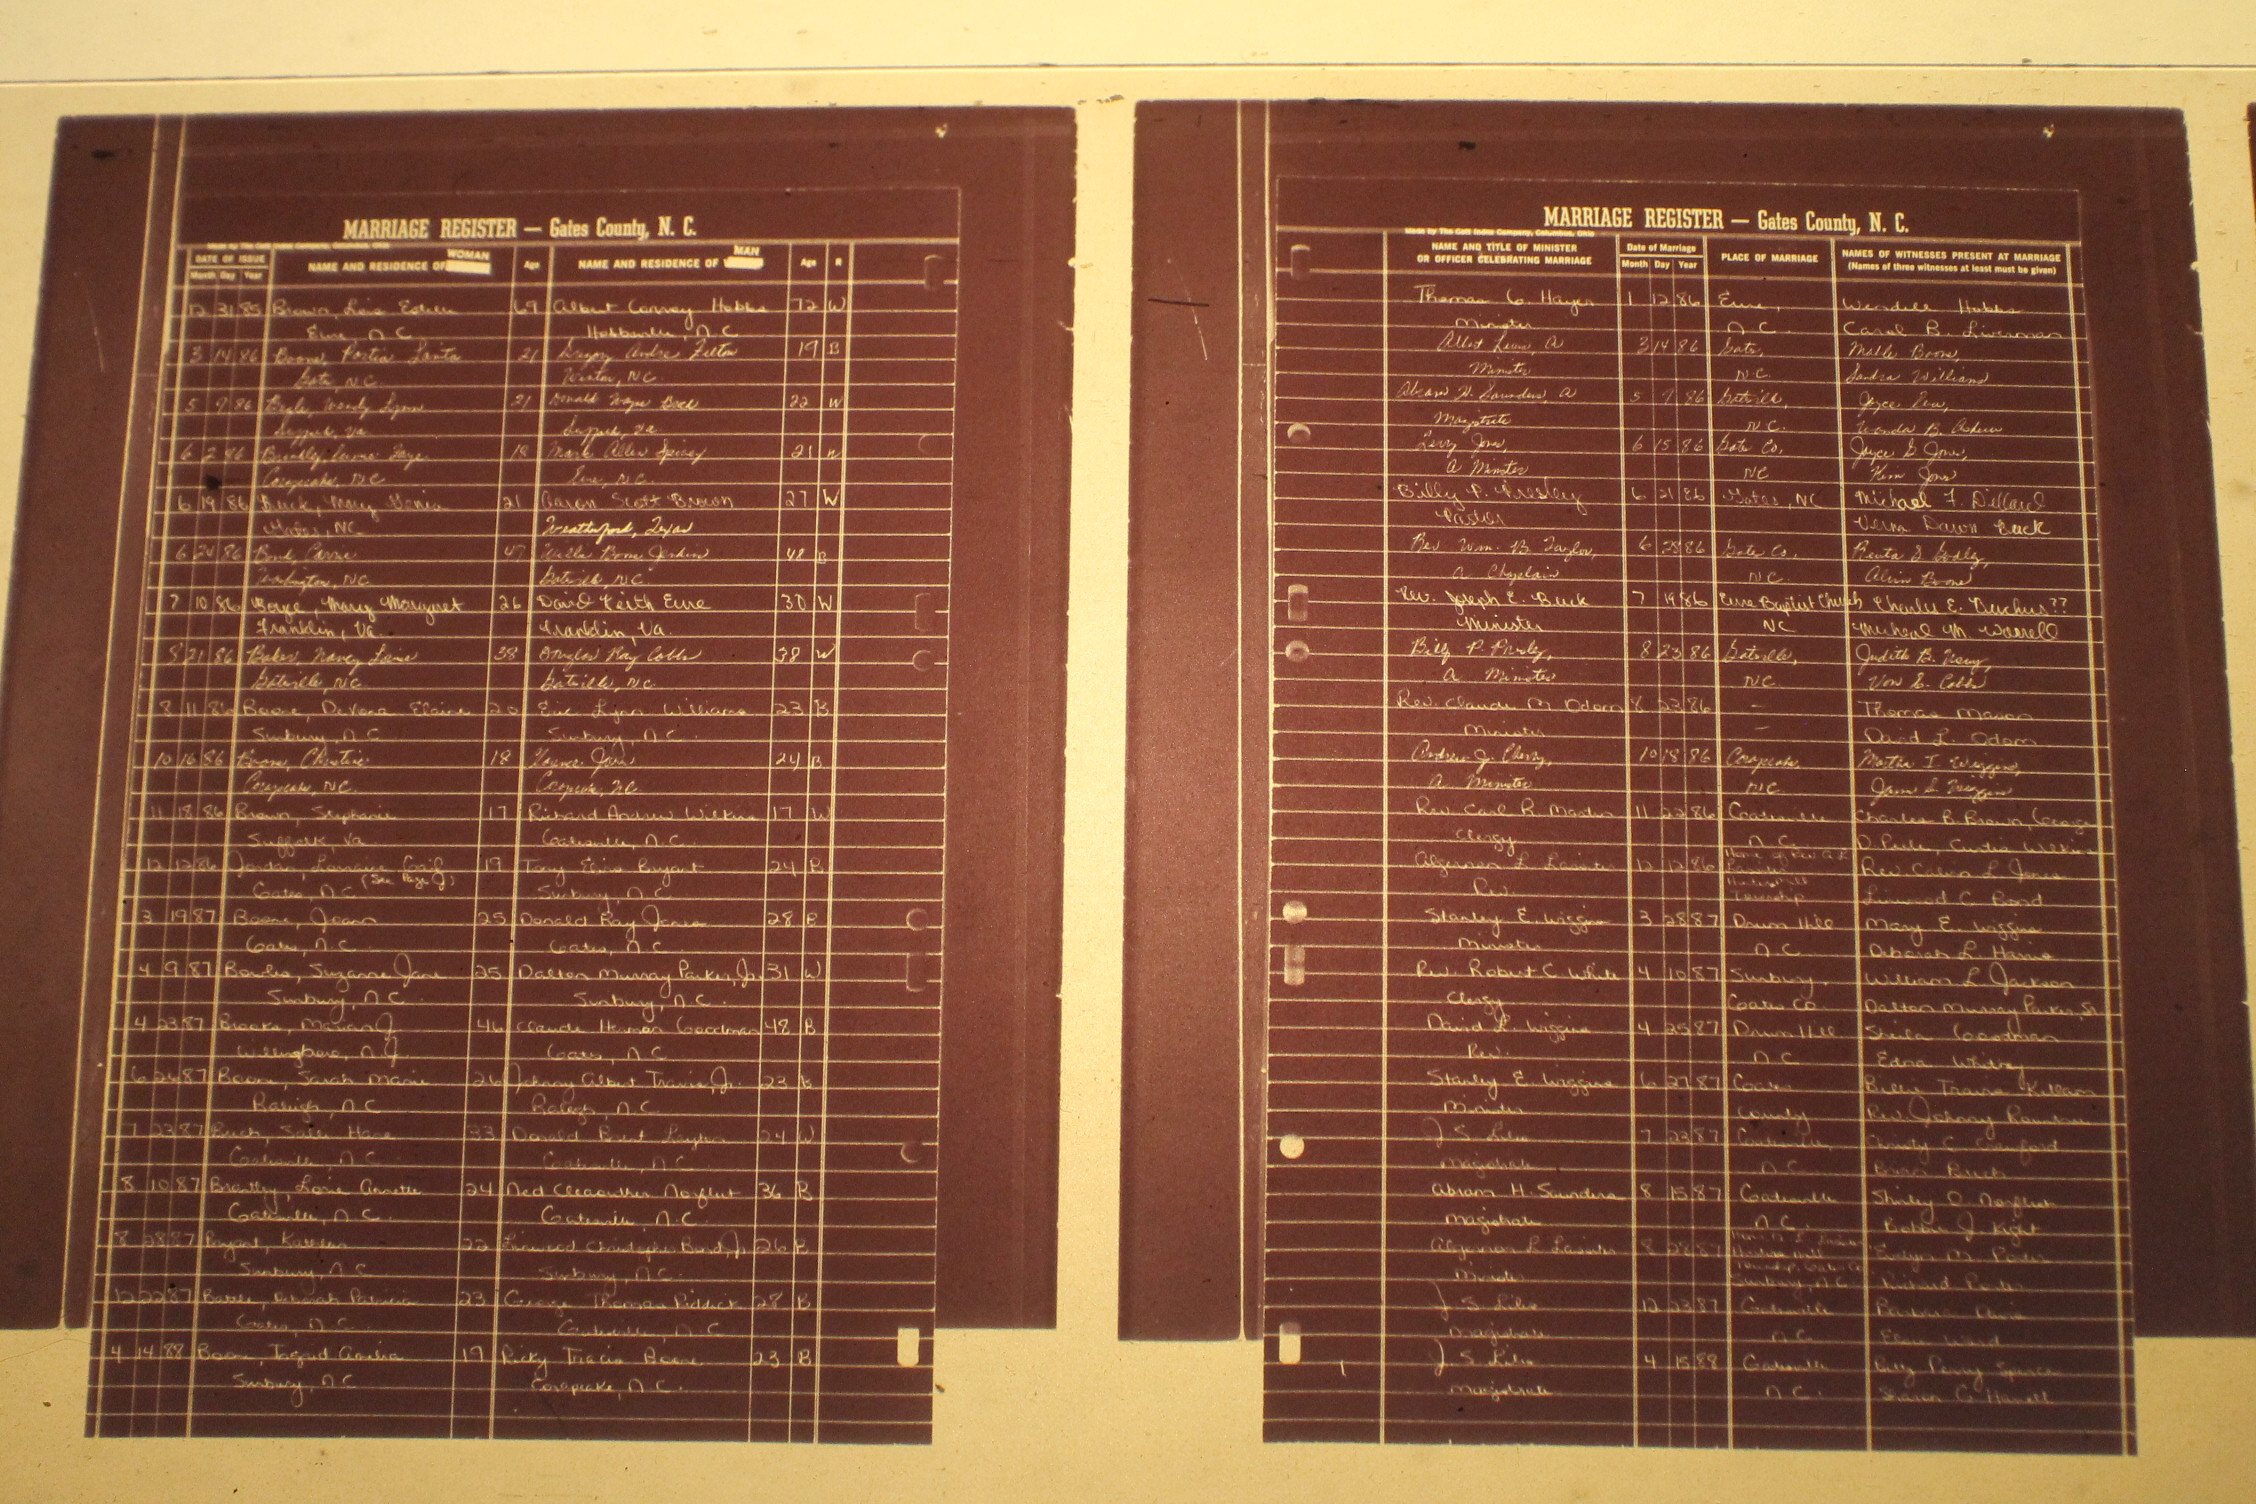 MARRIAGE REGISTER — Gates County, N. C.
Made by The Cott Index Company, Columbus, Ohio
DATE OF ISSUE
Month Day Year
NAME AND RESIDENCE OF WOMAN
Age
NAME AND RESIDENCE OF MAN
Age
R
12 31 85 Brown, Lois Estelle 69 Albert Conroy Hobbs 72 W
Eure, N C Hobbsville, N C
3 14 86 Boone, Portia Lanta 21 Andre Felton 19 B
Gates, N.C. Winton, N.C.
5 9 86 Wendy Lynn 21 Donald Wayne 22 W
Suffolk, Va. Suffolk, Va.
6 2 86 Brinkley, Faye 18 Mark Allen Spivey 21 W
Corapeake, N.C. Eure, N.C.
6 19 86 Buck, Mary 21 Aaron Scott Brown 27 W
Gates, NC Weatherford, Texas
6 24 86 Bond, Carrie 47 Willie Boone Jenkins 48 B
Washington, NC Gatesville, N.C.
7 10 86 Boyce, Mary Margaret 26 David Keith Eure 30 W
Franklin, Va. Franklin, Va.
8 21 86 Baker, Nancy 38 Douglas Ray Cobbs 38 W
Gatesville, N.C. Gatesville, N.C.
8 11 86 Boone, DeVona Elaine 20 Eric Lynn Williams 23 B
Sunbury, N C Sunbury, N.C.
10 16 86 Boone, Christine 18 24 B
Corapeake, N.C. Corapeake, N.C.
11 18 86 Brown, Stephanie 17 Richard Andrew Wilkins 17 W
Suffolk, Va Gatesville, N.C.
12 12 86 Jordan, Lorraine Gail 19 Tony Bryant 24 B
Gates, N.C (See Page J) Sunbury, N.C
3 19 87 Boone, Joann 25 Donald Ray Jones 28 B
Gates, N.C Gates, N.C
4 9 87 Bowles, Suzanne Jane 25 Dalton Murray Parker, Jr. 31 W
Sunbury, N.C. Sunbury, N.C.
4 23 87 Brooks, Marian J. 46 Claude Herman Goodman 48 B
Willingboro, N.J. Gates, N.C
6 26 87 Boone, Sarah Marie 26 Johnny Albert Travis, Jr. 23 B
Raleigh, N.C Raleigh, N.C.
7 23 87 33 Donald Layton 24 W
Gatesville, N.C. Gatesville, N.C.
8 10 87 Brantley, Annette 24 Ned Norfleet 36 B
Gatesville, N.C. Gatesville, N.C.
8 28 87 Bryant, 22 Linwood Christopher Bond, Jr. 26 B
Sunbury, N.C Sunbury, N.C.
12 22 87 Deborah Patricia 23 George Thomas Riddick 28 B
Gates, N.C. Gatesville, N.C
4 14 88 Boone, 19 Ricky Boone 23 B
Sunbury, N.C Corapeake, N.C.
MARRIAGE REGISTER — Gates County, N. C.
Made by The Cott Index Company, Columbus, Ohio
NAME AND TITLE OF MINISTER
OR OFFICER CELEBRATING MARRIAGE
Date of Marriage
Month Day Year
PLACE OF MARRIAGE
NAMES OF WITNESSES PRESENT AT MARRIAGE
(Names of three witnesses at least must be given)
Thomas G. Hayes 1 12 86 Eure, Wendell Hobbs
Minister N.C. Carol B. Liverman
Albert Lewis, A 3 14 86 Gates, Boone,
Minister N.C. Sandra Williams
Abram H. Saunders, A 5 9 86 Gatesville, Joyce
Magistrate N.C. Wanda B. Askew
Jones, 6 15 86 Gates Co, Joyce G Jones,
A Minister NC Kim Jones
Billy P. Presley 6 21 86 Gates, NC Michael F. Dillard
Pastor Verna Dawn Buck
Rev Wm. B. Taylor, 6 28 86 Gates Co,
A Chaplain N.C. Alvin Boone
Rev. Joseph E. Buck 7 19 86 Eure Baptist Church Charles E. ??
Minister NC Micheal M. Worrell
Billy P. Presley, 8 23 86 Gatesville, Judith B.
A Minister N.C. Von S. Cobbs
Rev. Claude M. Odom 8 23 86 — Thomas Mason
Minister — David L. Odom
Andrew J. Cherry, 10 18 86 Corapeake, Martha I. Wiggins,
A Minister N.C.
Rev. Carl R. Martin 11 22 86 Gatesville Charles B. Brown, George
Clergy N.C. Curtis Wilkins
Algernon L. Lassiter 12 12 86 Home of Rev. A. L. Rev. Calvin L. Jones
Rev. Township Linwood C. Bond
Stanley E. Wiggins 3 28 87 Drum Hill Mary E. Wiggins
Minister N.C Deborah L. Harris
Rev. Robert C. White 4 10 87 Sunbury, William L. Jackson
Clergy Gates Co Dalton Murray Parker, Sr.
David L. Wiggins 4 25 87 Drum Hill Sheila Goodman
Rev. N.C Edna
Stanley E. Wiggins 6 27 87 Gates Travis
Minister County Rev. Johnny
J. S. Liles 7 23 87 Gatesville, C. Crawford
Magistrate N.C.
Abram H. Saunders 8 15 87 Gatesville Shirley D. Norfleet
Magistrate N.C. Bobbie J. Kight
Algernon L Lassiter 8 28 87 Evelyn M.
Minister Sunbury, N.C Richard
J. S. Liles 12 23 87 Gatesville Barbara
Magistrate N.C. Ward
J. S. Liles 4 15 88 Gatesville Perry Spencer
Magistrate N.C. Sharon G. Harrell